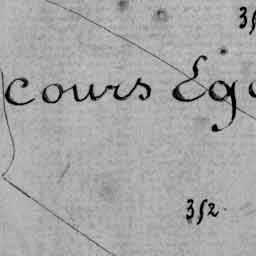 cours Ég
352